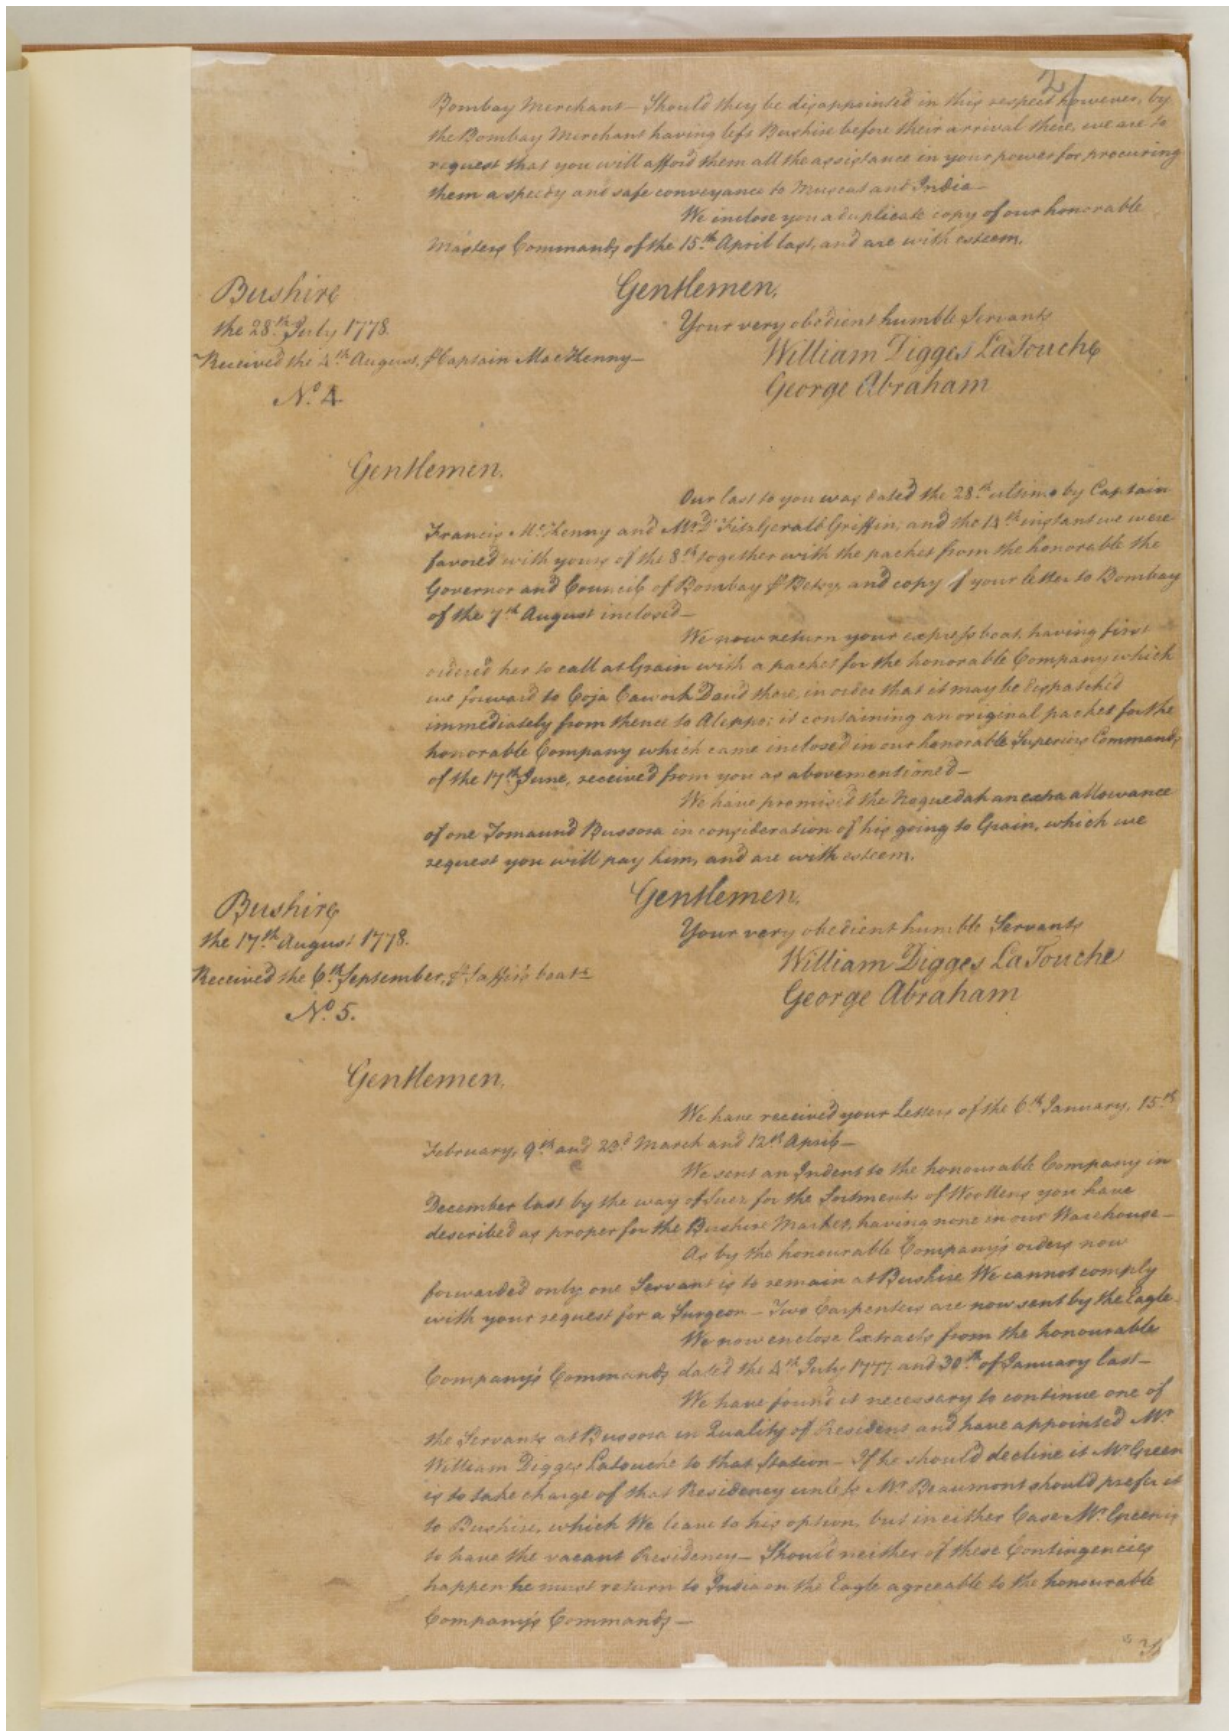 2
Bombay Merchant – Should they be disappointed in this respect however, by
the Bombay Merchant having left Bushire before their arrival there, we are to
request that you will afford them all the assistance in your power for procuring
them a speedy and safe conveyance to Muscat and India –
We inclose you a duplicate copy of our honorable
Masters Commands of the 15th. April last, and are with esteem,
Gentlemen,
Bushire
Your very obedient humble Servants
the 28th. July 1778.
William Digges LaTouche
Received the 4th August, ⅌ Captain MacKenny –
George Abraham
No. 4
Gentlemen.
Our last to you was dated the 28th. ultimo by Captain
Francis McKenny and Mr. D' FitzGerald Griffin; and the 14th instant we were
favored with yours of the 8th together with the packet from the honorable the
Governor and Council of Bombay ⅌ Betsy, and copy of your letter to Bombay
of the 7th August inclosed –
We now return your express boat, having first
ordered her to call at Grain with a packet for the honorable Company which
we forward to Coja Cawork David there, in order that it may be dispatched
immediately from thence to Aleppo; it containing an original packet for the
honorable Company which came inclosed in our honorable Superiors Commands
of the 17th. June, received from you as abovementioned –
We have promised the Noquedah an extra allowance
of one Tomaund Bussora in consideration of his going to Grain, which we
request you will pay him, and are with esteem,
Gentlemen.
Bushire
Your very obedient humble Servants
the 17th. August 1778.
William Digges LaTouche
Received the 6th. September, ⅌ boat –
George Abraham
No. 5.
Gentlemen,
We have received your Letters of the 6th January, 15th
February, 9th and 23d March and 12th April –
We sent an Indent to the honourable Company in
December last by the way of Suez for the Sortments of Woollens you have
described as proper for the Bushire Market, having none in our Warehouse –
As by the honourable Company's orders now
forwarded only one Servant is to remain at Bushire We cannot comply
with your request for a Surgeon – Two Carpenters are now sent by the Eagle
We now enclose Extracts from the honourable
Company's Commands dated the 4th July 1777 and 30th. of January last –
We have found it necessary to continue one of
the Servants at Bussora in Quality of Resident and have appointed Mr
William Digges Latouche to that Station – If he should decline it Mr Green
is to take charge of that Residency unless Mr Beaumont should prefer it
to Bushire, which We leave to his option, but in either Case Mr Green is
to have the vacant Residency – Should neither of these Contingencies
happen he must return to India on the Eagle agreeable to the honourable
Company's Commands –